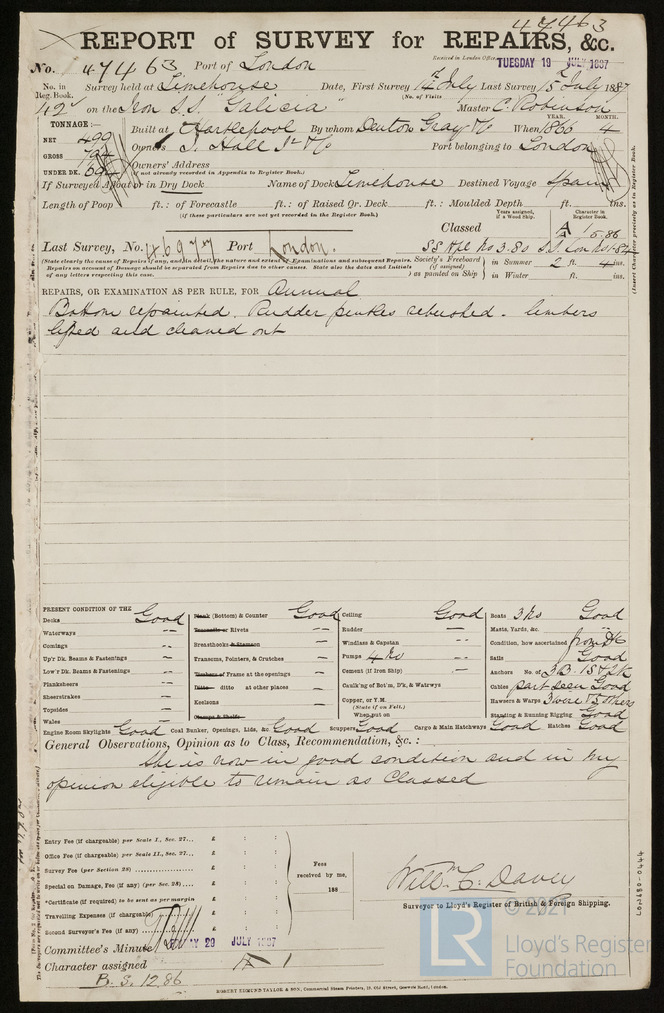 47463
REPORT of SURVEY for REPAIRS, &c.
Received in London Office TUESDAY 19 JULY 1887
No. 47463 Port of London
No. in Reg. Book. Survey held at Limehouse Date, First Survey 14 July Last Survey 15 July 1887
(No. of Visits
42 on the Iron S.S. "Galicia" Master C. Robinson
TONNAGE:— YEAR. MONTH.
NET 499 Built at Hartlepool By whom Denton Gray & Co When 1866 4
GROSS 794 Owners J. Hall Jr & Co Port belonging to London
UNDER DK. Owners' Address
(if not already recorded in Appendix to Register Book.)
If Surveyed Afloat or in Dry Dock Name of Dock Limehouse Destined Voyage Spain
Length of Poop ft.: of Forecastle ft.: of Raised Qr. Deck ft.: Moulded Depth ft. ins.
(If these particulars are not yet recorded in the Register Book.)
Years assigned, if a Wood Ship. Character in Register Book.
Classed A 1
5.86
Last Survey, No. 46977 Port London.
(State clearly the cause of Repairs if any, and in detail, the nature and extent of Examinations and subsequent Repairs.
Repairs on account of Damage should be separated from Repairs due to other causes. State also the dates and Initials
of any letters respecting this case.
Society's Freeboard (if assigned) as painted on Ship in Summer 2 ft. 4 ins.
in Winter ft. ins.
(Insert Character precisely as in Register Book.)
REPAIRS, OR EXAMINATION AS PER RULE, FOR Annual
Bottom repainted. Rudder pintles rebushed. limbers
lifted and cleaned out
PRESENT CONDITION OF THE
Decks Good
Waterways "
Comings "
Up'r Dk. Beams & Fastenings "
Low'r Dk. Beams & Fastenings "
Planksheers "
Sheerstrakes "
Topsides "
Wales "
Engine Room Skylights Good
Plank (Bottom) & Counter Good
Treenails or Rivets "
Breasthooks & Stemson "
Transoms, Pointers, & Crutches "
Timbers of Frame at the openings "
Ditto ditto at other places "
Keelsons "
Clamps & Shelfs
Coal Bunker, Openings, Lids, &c. Good
Ceiling Good
Rudder "
Windlass & Capstan "
Pumps 4 No "
Cement (if Iron Ship) "
Caulk'ng of Bot'm, D'k, & Watrwys
Copper, or Y.M.
(State if on Felt.)
When put on
Scuppers Good Cargo & Main Hatchways Good
Boats 3 No Good
Masts, Yards, &c.
Condition, how ascertained from Dk
Sails Good
Anchors No. of 3B. 1S & 2K
Cables part seen Good
Hawsers & Warps
Standing & Running Rigging Good
Hatches Good
General Observations, Opinion as to Class, Recommendation, &c.:
She is now in good condition and in my
opinion eligible to remain as Classed
Entry Fee (if chargeable) per Scale I., Sec. 27... £ : :
Office Fee (if chargeable) per Scale II., Sec. 27... £ : :
Survey Fee (per Section 28) £ : :
Special on Damage, Fee (if any) (per Sec. 28).... £ : :
*Certificate (if required) to be sent as per margin
Travelling Expenses (if chargeable) £ : :
Second Surveyor's Fee (if any) £ : :
Fees received by me,
188
Willm C. Davey
Surveyor to Lloyd's Register of British & Foreign Shipping.
Committee's Minute 29 JULY 1887
Character assigned A 1
B. S. 12.86
ROBERT EDMUND TAYLOR & SON, Commercial Steam Printers, 19, Old Street, Goswell Road, London.
LON680-0444
© 2021
LR
Lloyd's Register
Foundation